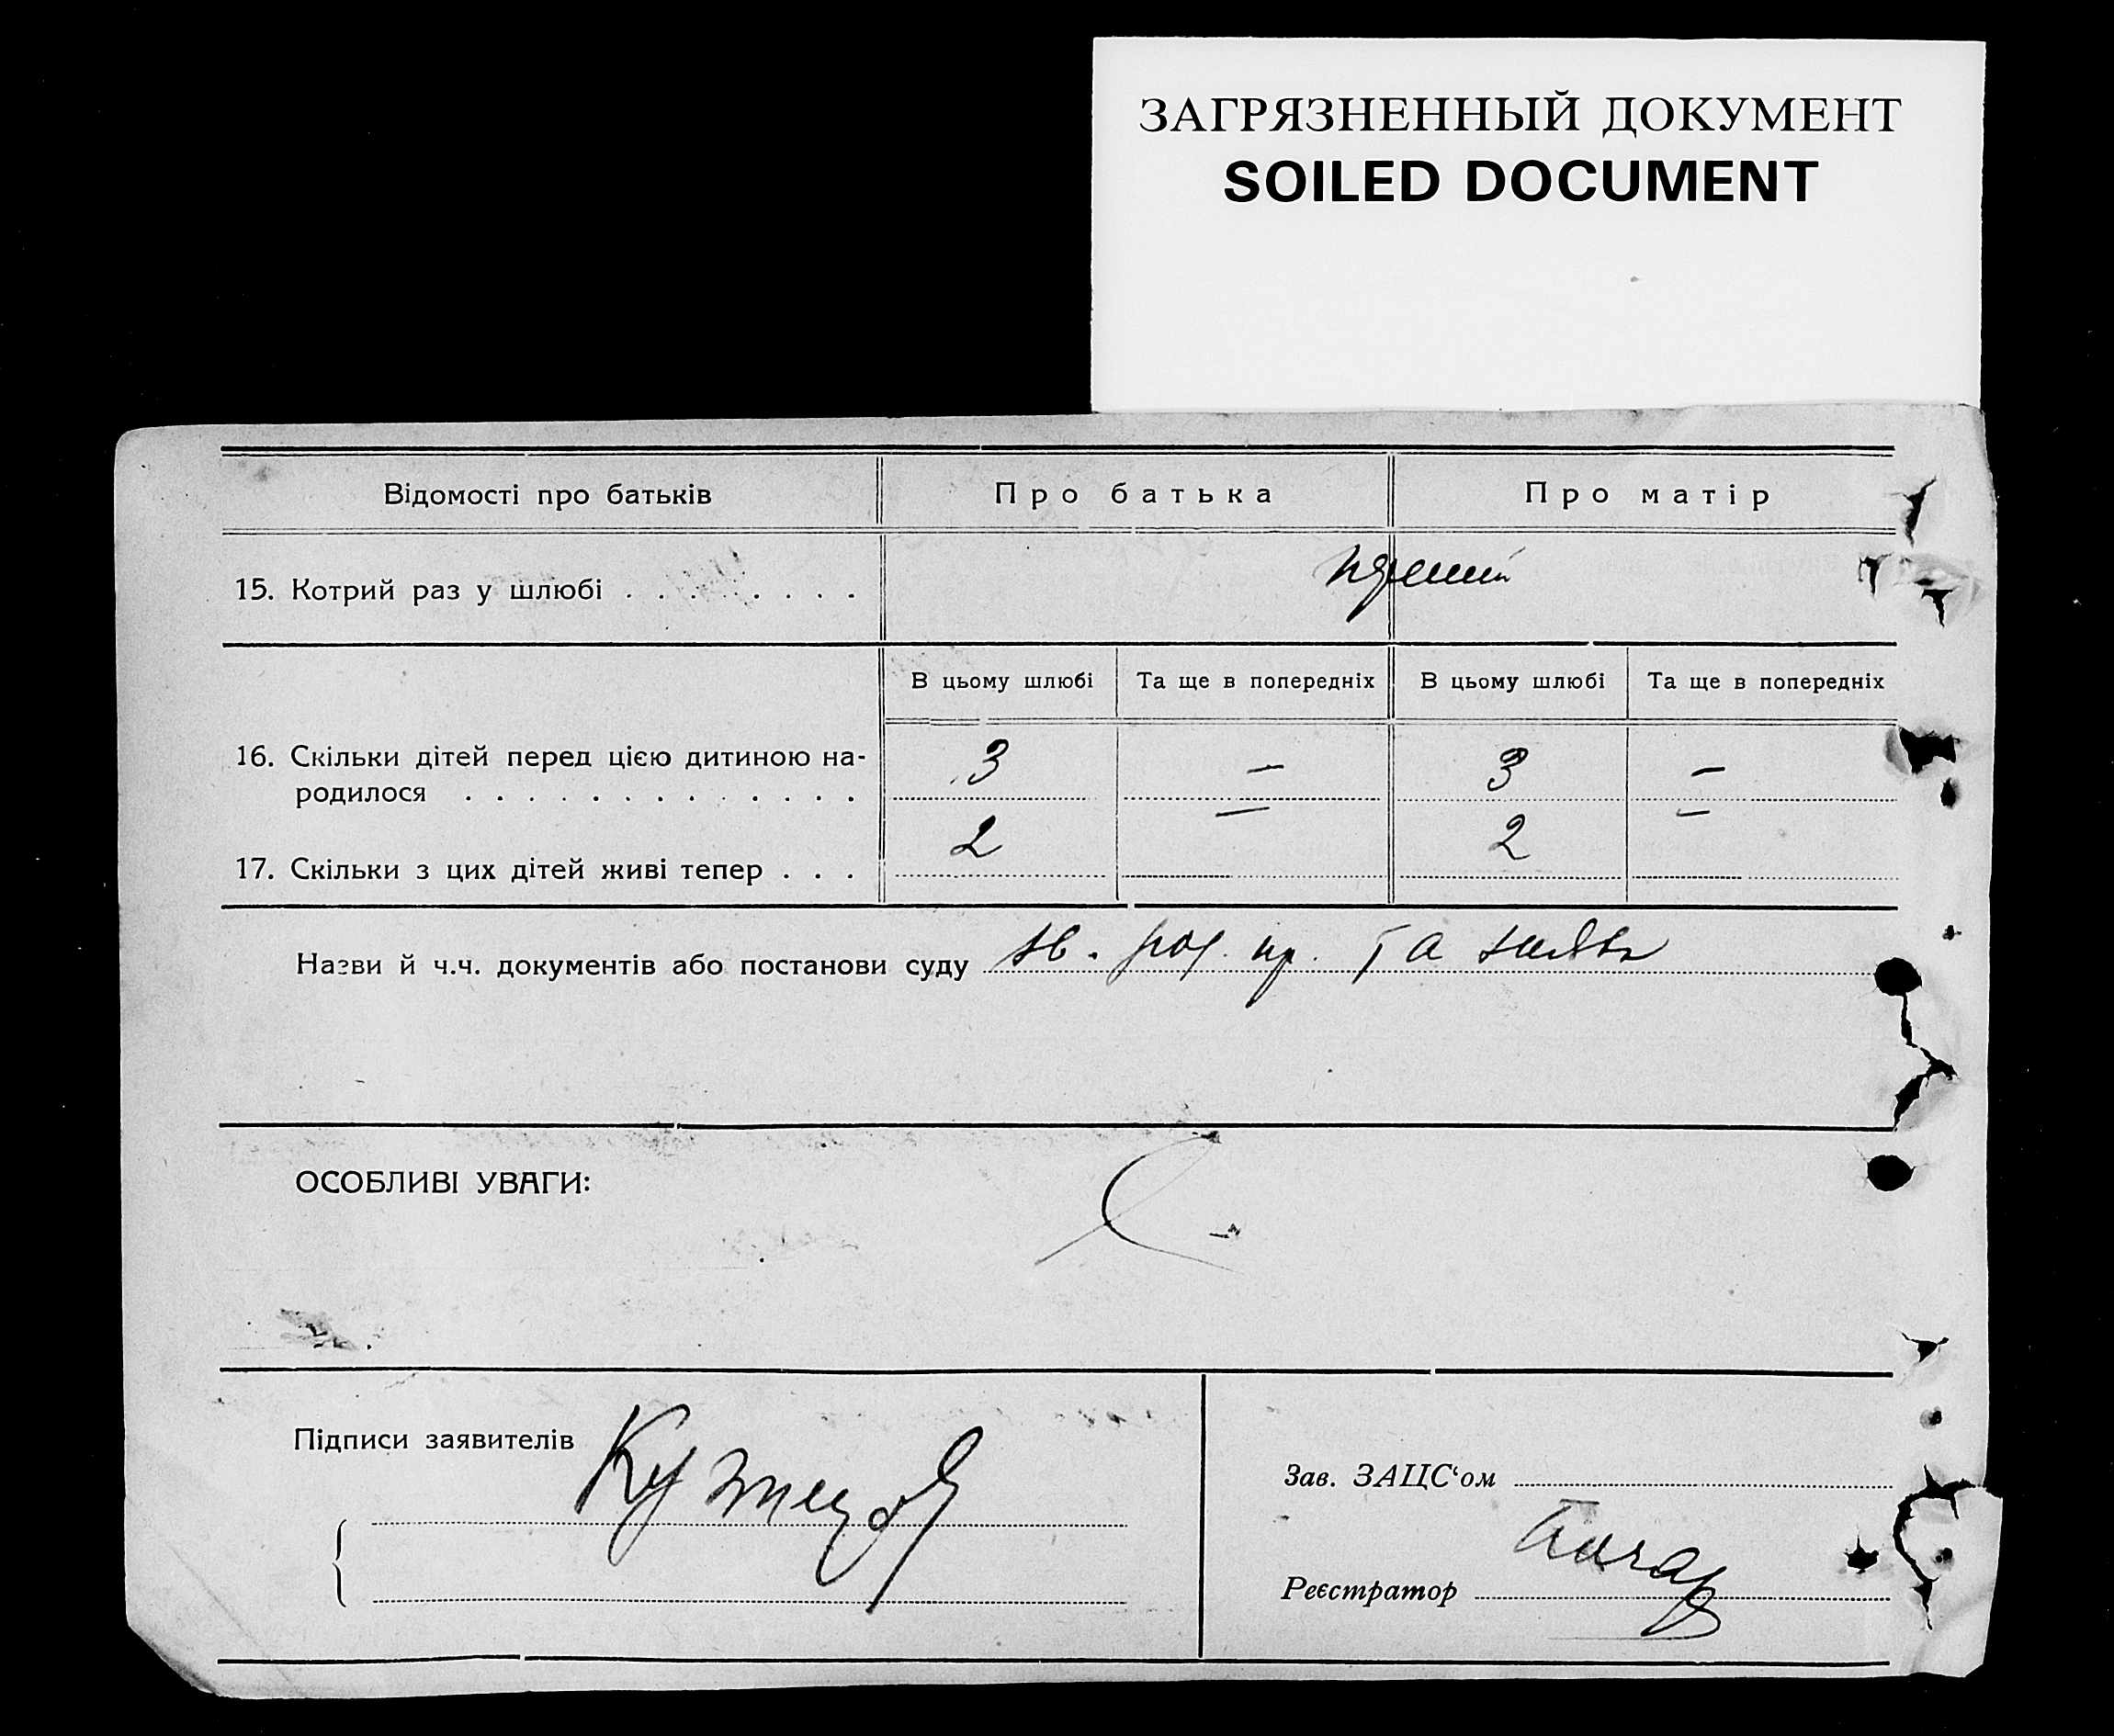 ЗАГРЯЗНЕННЫЙ ДОКУМЕНТ
SOILED DOCUMENT
Відомості про батьків Про батька Про матір
15. Котрий раз у шлюбі . . . . . . . .
В цьому шлюбі Та ще в попередніх В цьому шлюбі Та ще в попередніх
16. Скільки дітей перед цією дитиною на- 3 — 3 —
родилося . . . . . . . . . . . . .
17. Скільки з цих дітей живі тепер . . . 2 — 2 —
Назви й ч.ч. документів або постанови суду зв. пр. та заява
ОСОБЛИВІ УВАГИ:
Підписи заявителів
Зав. ЗАЦС‘ом
Реєстратор